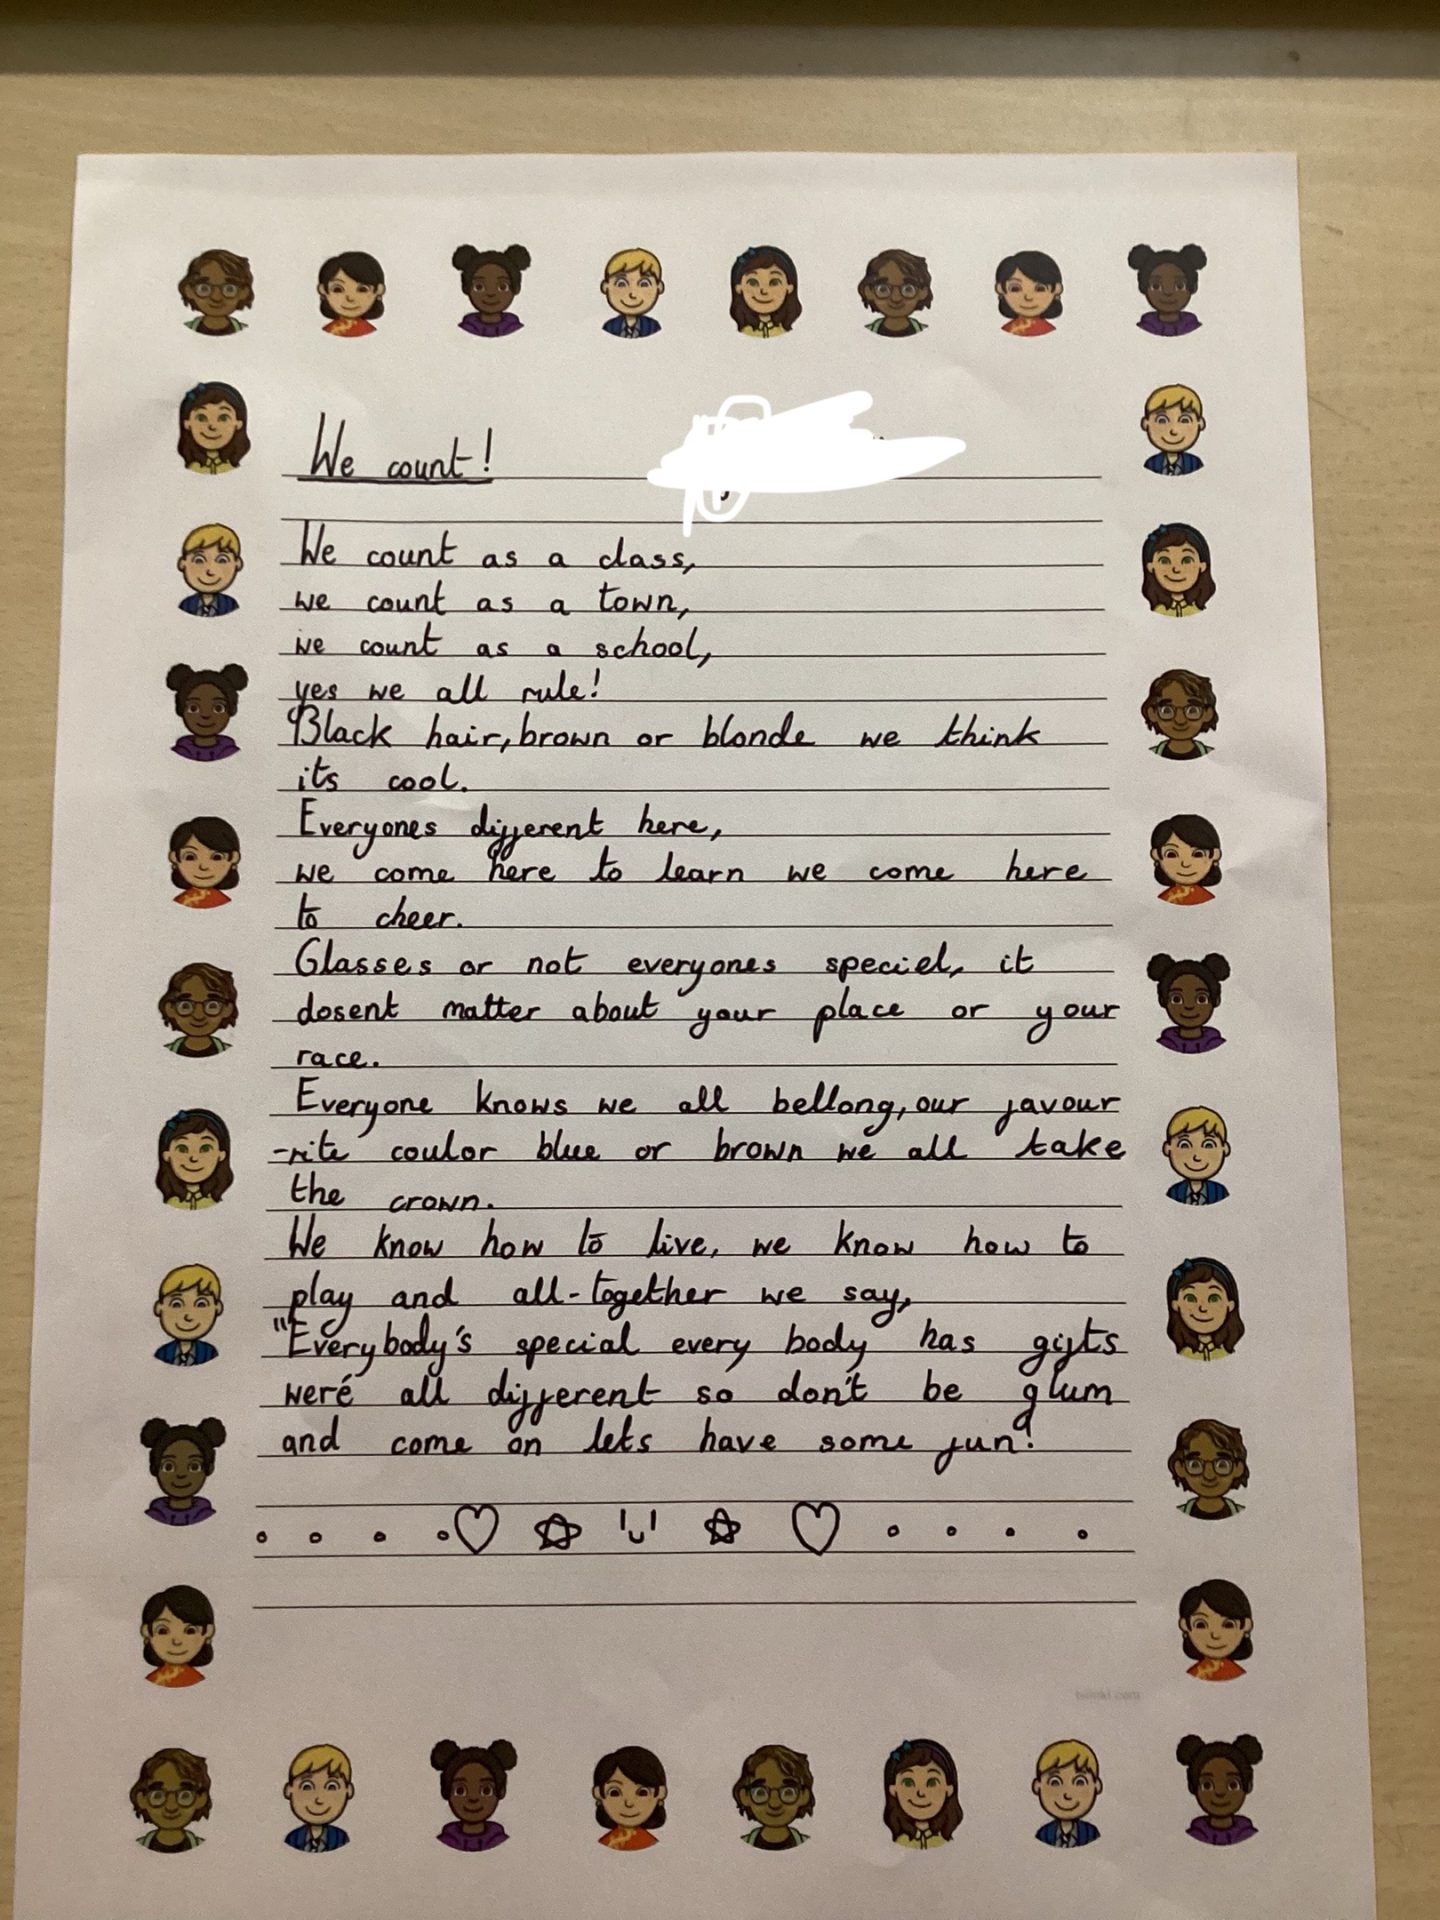 We count!
We count as a class,
we count as a town,
we count as a school,
yes we all rule!
Black hair, brown or blonde we think
its cool.
Everyones different here,
we come here to learn we come here
to cheer.
Glasses or not everyones speciel, it
dosent matter about your place or your
race.
Everyone knows we all bellong, our favour
-rite coulor blue or brown we all take
the crown.
We know how to live, we know how to
play and all-together we say,
"Everybody's special every body has gifts
were' all different so don't be glum
and come on lets have some fun!
twinkl.com